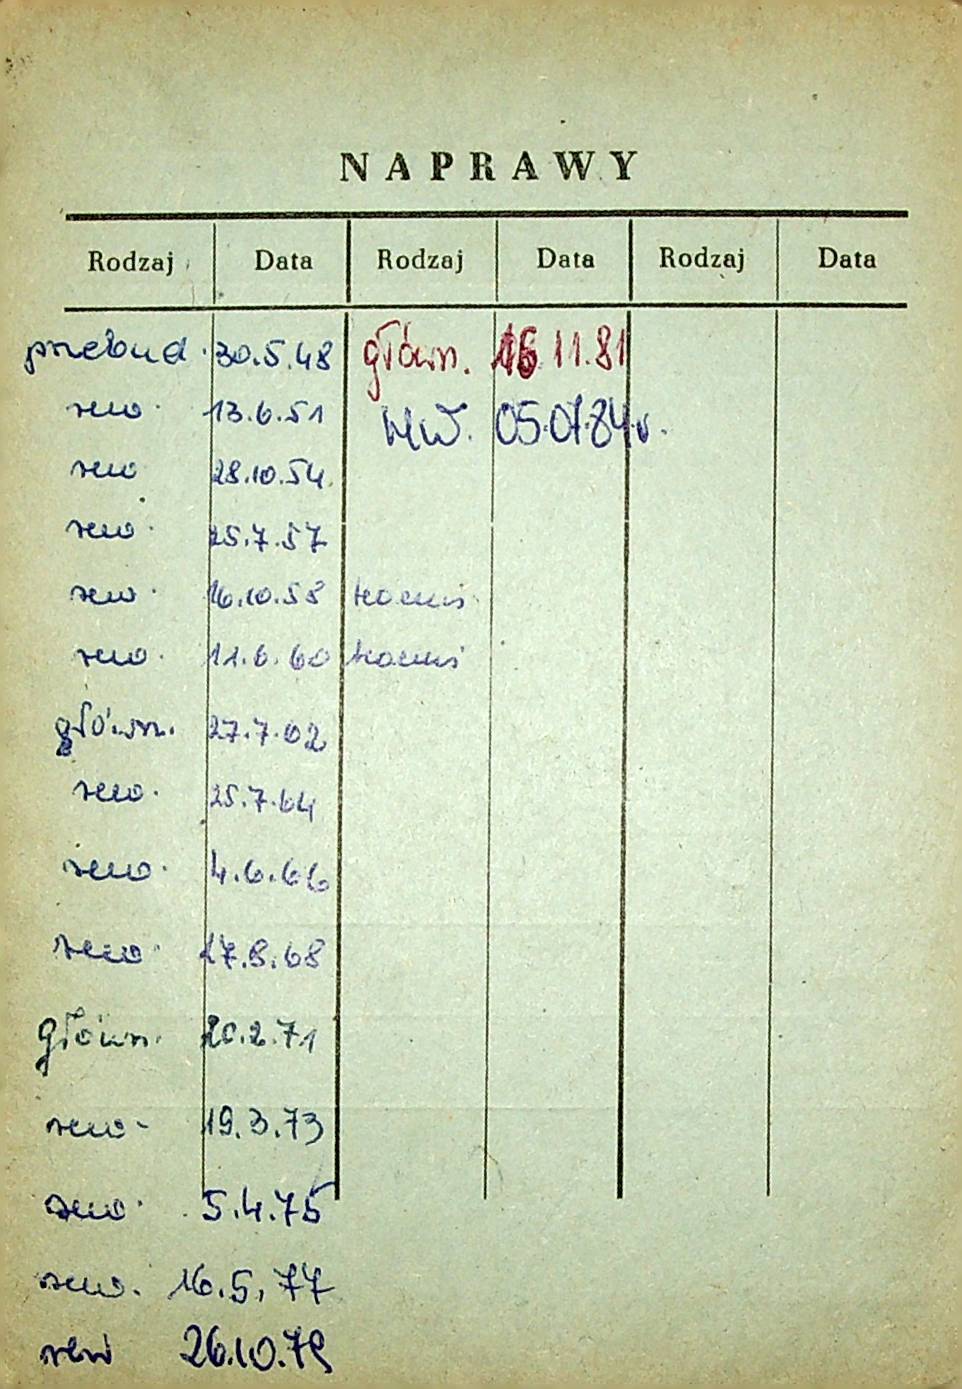 NAPRAWY
Rodzaj Data Rodzaj Data Rodzaj Data
przebud. 30.5.48 główn. 16.11.81
rew. 13.6.51 NW. 05.01.84r.
rew 28.10.54.
rew. 25.7.57
rew. 16.10.58
rew. 11.6.60
główn. 27.7.62
rew. 25.7.64
rew. 4.6.66
rew. 17.8.68
główn. 20.2.71
rew. 19.3.73
rew. 5.4.75
rew. 16.5.77
rew 26.10.79